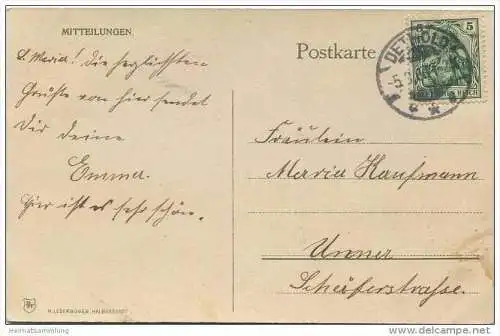 MITTEILUNGEN.
Postkarte
5
DETMOLD
REICH
L. Maria! Die herzlichsten
Grüße von hier sendet
Dir deine
Emma.
Hier ist es sehr schön.
Fräulein
Maria Kaufmann
Unna
Schäferstrasse.
R. LEDERBOGEN, HALBERSTADT
heimatsammlung
www.delcampe.net